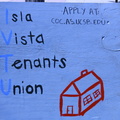 Isla
Vista
Tenants
Union
APPLY AT
COC.AS.UCSB.EDU